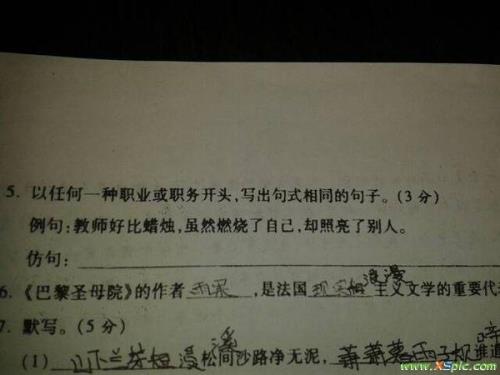 5. 以任何一种职业或职务开头,写出句式相同的句子。(3分)
例句:教师好比蜡烛,虽然燃烧了自己,却照亮了别人。
仿句:
6.《巴黎圣母院》的作者 雨果 ,是法国 浪漫 主义文学的重要代
7. 默写。(5分)
(1) 山下兰芽短浸溪 松间沙路净无泥, 萧萧暮雨子规啼
www.XSpic.com